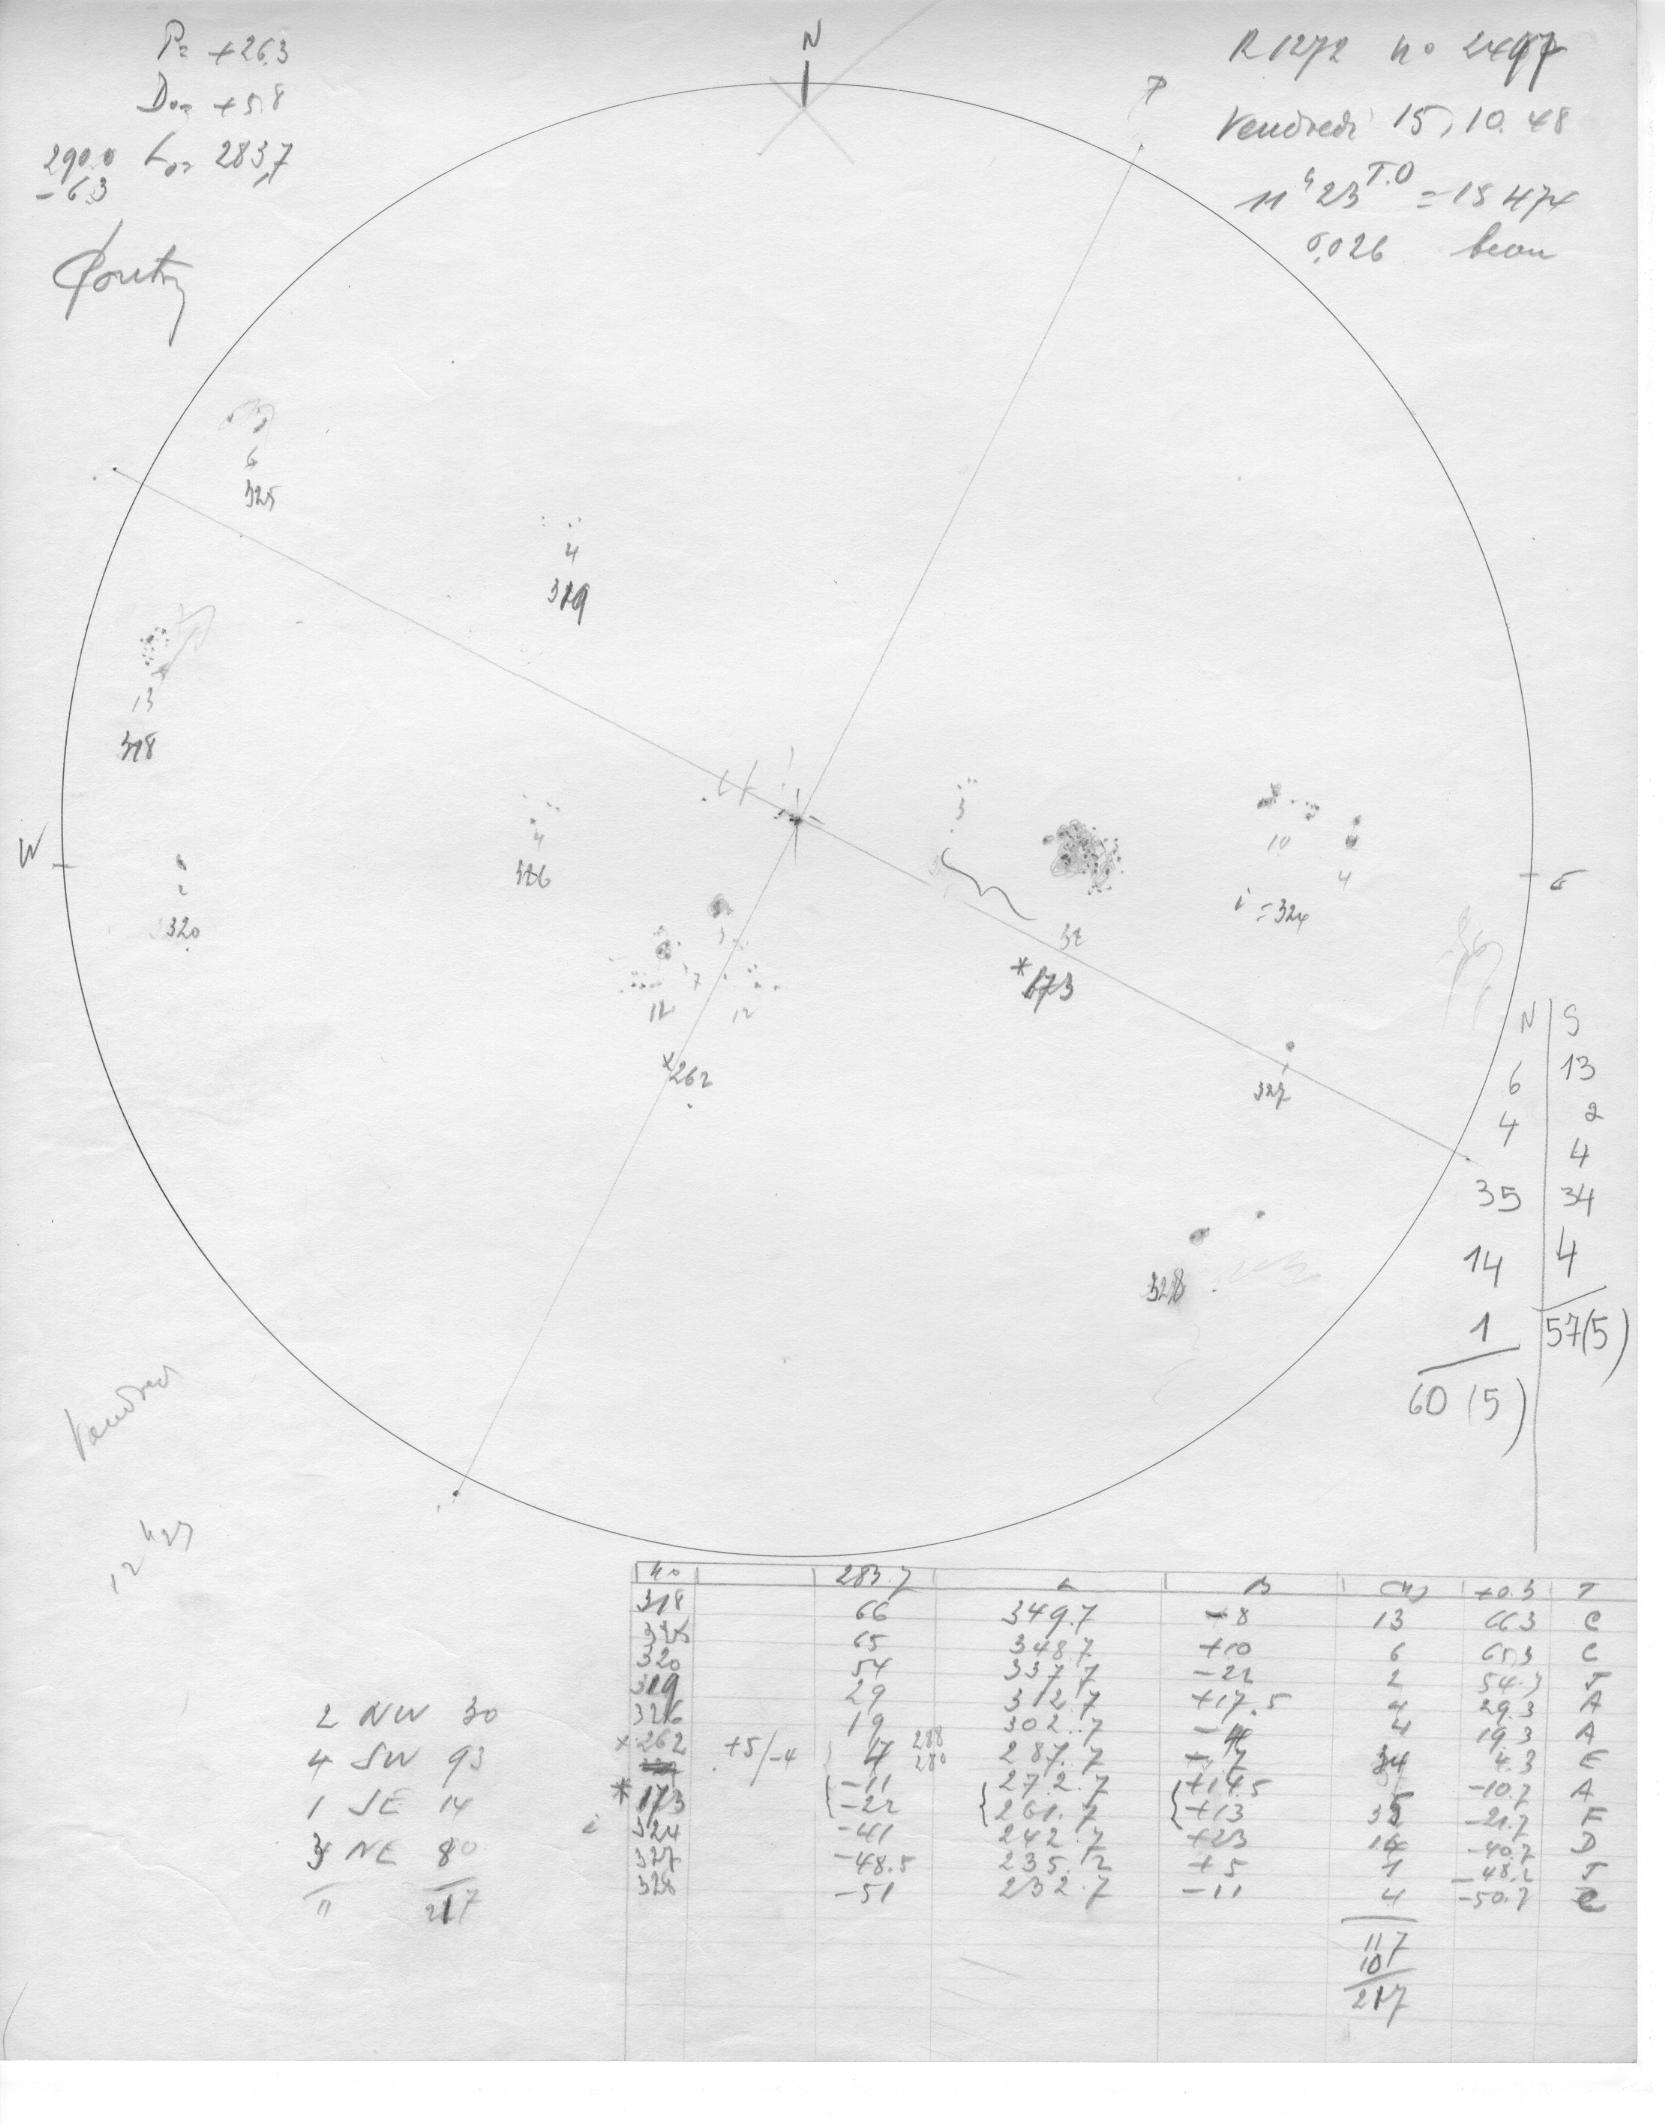 P= +26,3
Do= +5,8
290.0 Lo= 283,7
-6.3
N
P
R1272 no 2497
Vendredi 15.10.48
11 h 23 T.O = 15 474
0,026 beau
6
325
4
319
13
318
W
E
2
320
4
326
3
10
4
i = 324
3
7
12
12
*262
*173
327
328
N | S
6 | 13
4 | 2
4
35 | 34
14 | 4
1 | 57(5)
60 (5)
Vendredi
no 283.7 L B +0.3 T
318 66 349.7 -8 13 66.3 C
325 65 348.7 +10 6 65.3 C
320 54 337.7 -22 2 54.3 J
319 29 312.7 +17.5 4 29.3 A
326 19 302.7 4 19.3 A
*262 +5/-4 4 288 280 287.7 -7 34 4.3 E
-11 272.7 +14.5 -10.7 A
*173 -22 261.7 +13 35 -21.7 F
i 324 -41 242.7 +23 14 -40.7 D
327 -48.5 235.2 +5 1 -48.2 J
328 -51 232.7 -11 4 -50.7 C
117
10
217
2 NW 30
4 SW 93
1 SE 14
3 NE 80
11 217